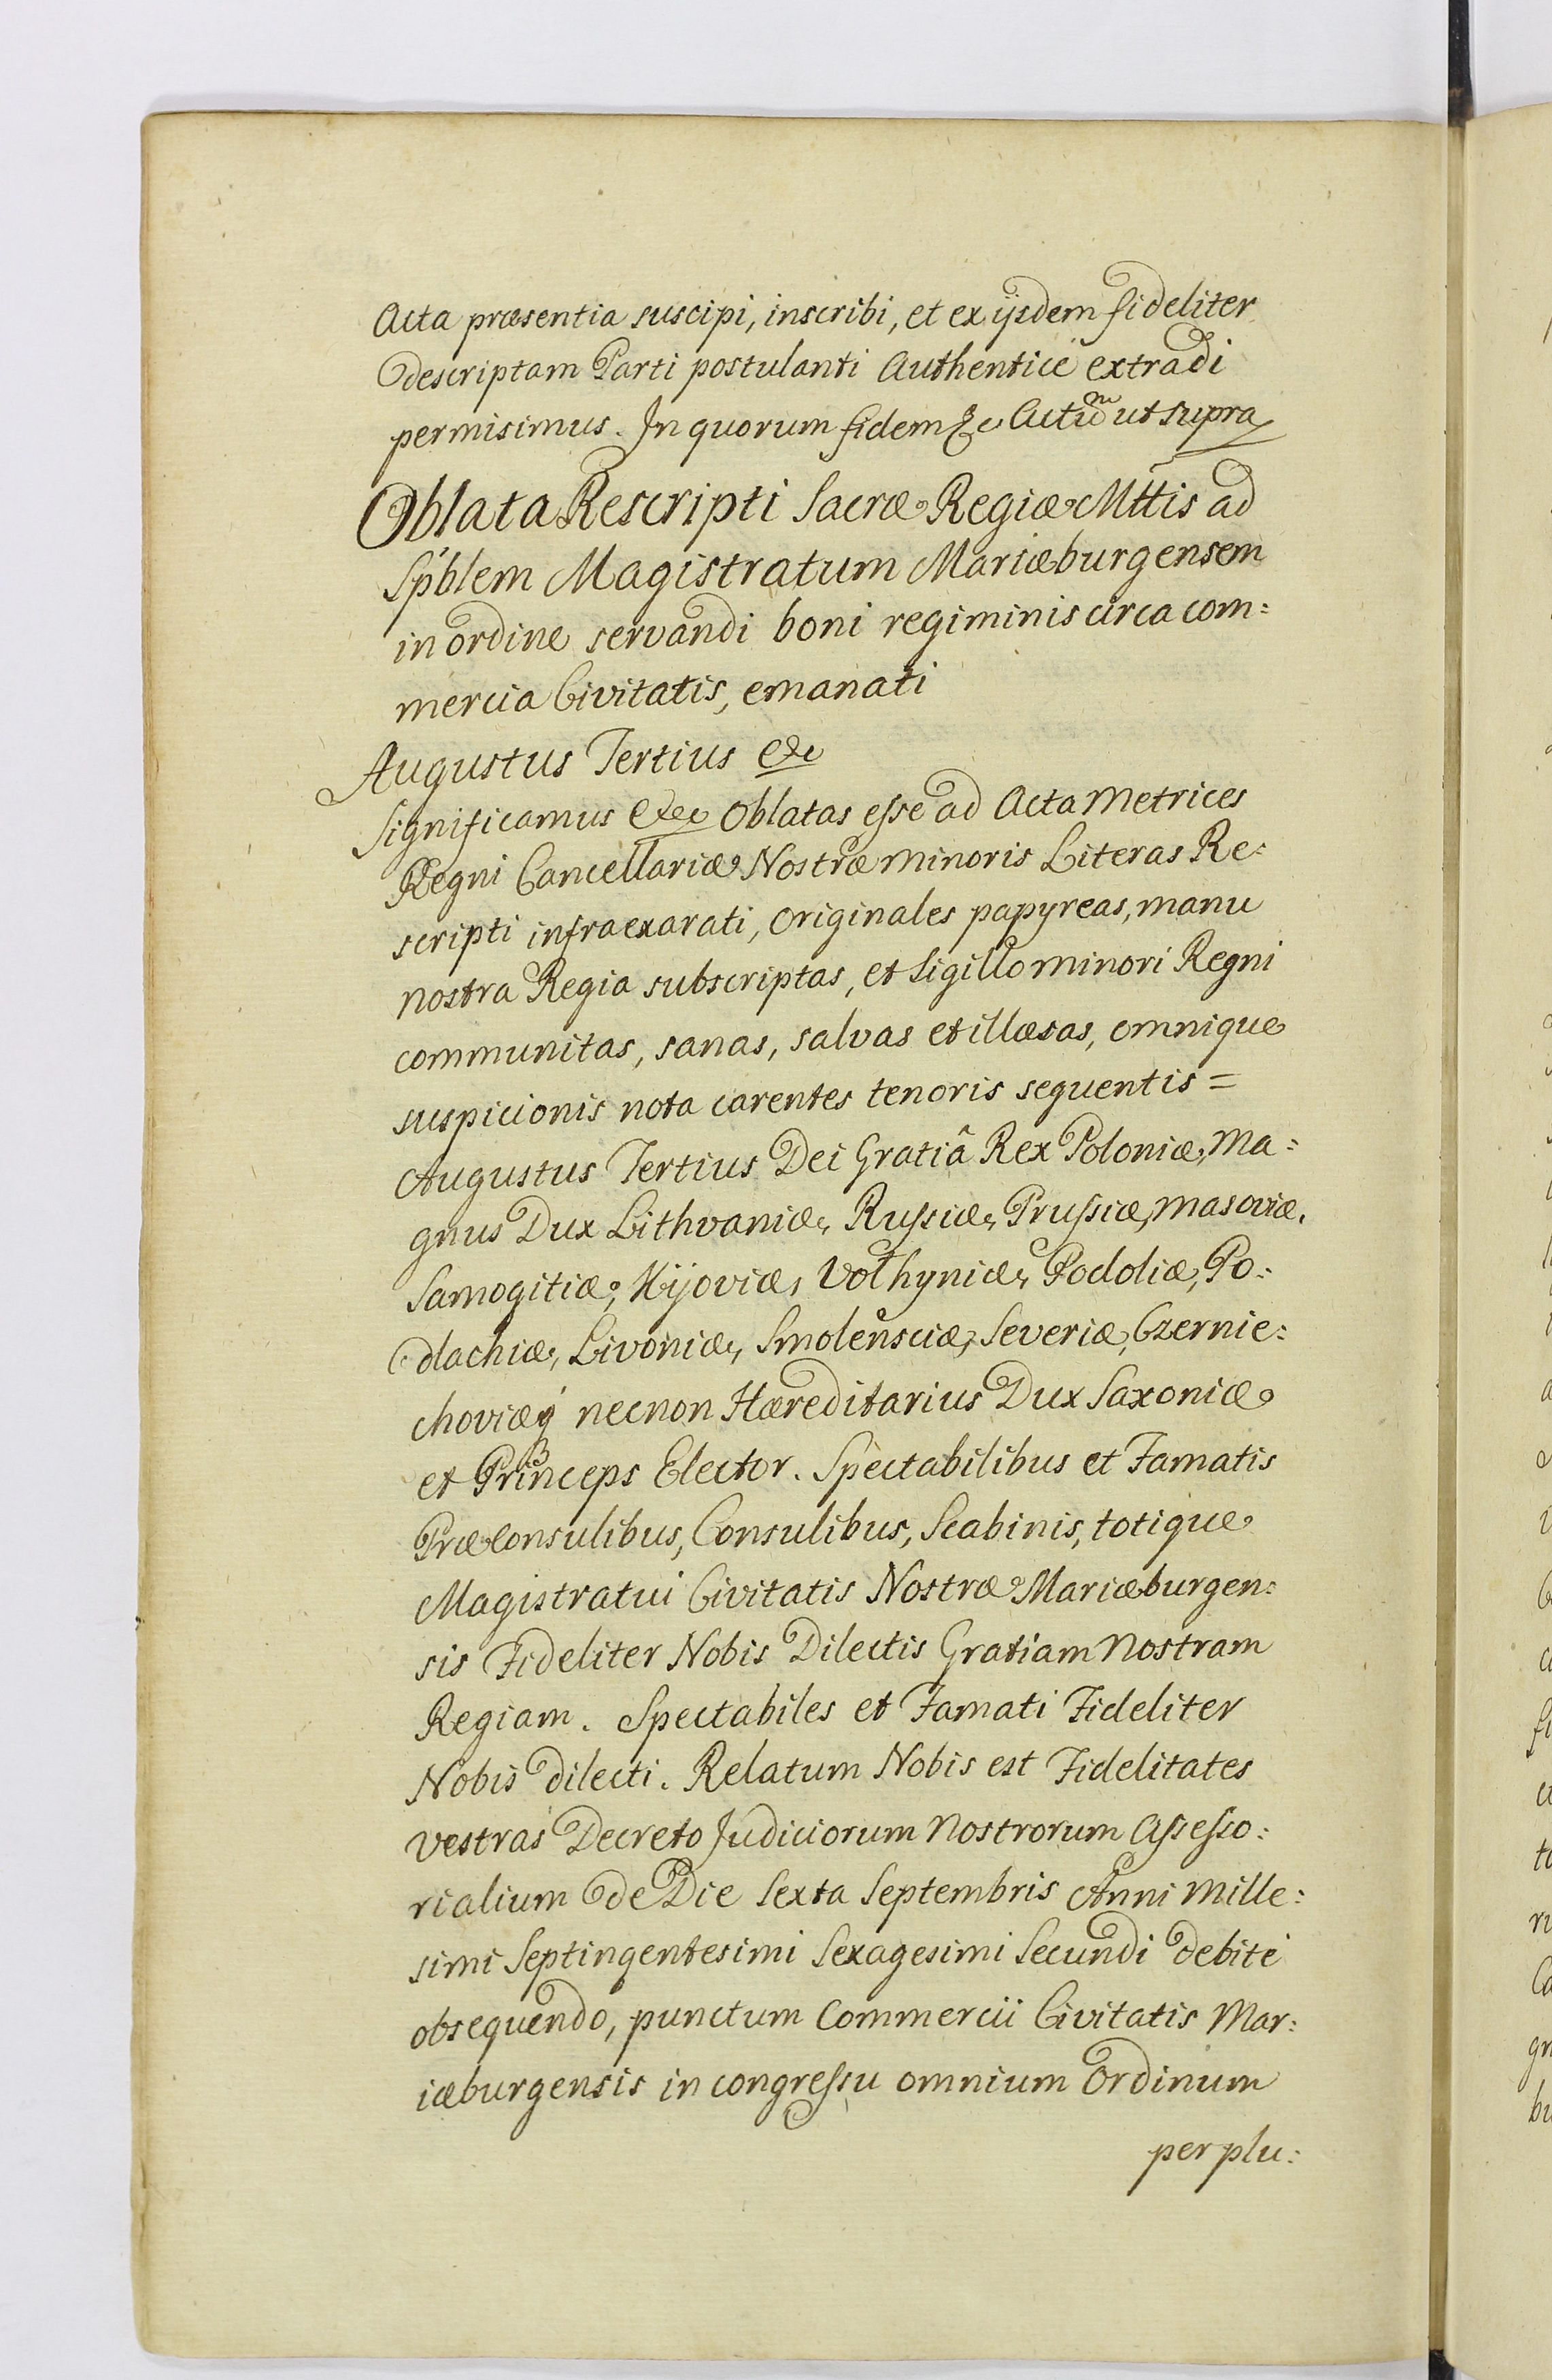 Acta præsentia suscipi, inscribi, et ex ijsdem fideliter
descriptam Parti postulanti Authenticè extradi
permisimus. In quorum fidem &c Actũ ut supra
Oblata Rescripti Sacræ Regiæ Mttis ad
Spblem Magistratum Mariæburgensem
in ordine servandi boni regiminis circa com:
mercia Civitatis, emanati
Augustus Tertius &c
Significamus &c Oblatas esse ad Acta Metrices
Regni Cancellariæ Nostræ minoris Literas Re:
scripti infraexarati, Originales papyreas, manu
nostra Regia subscriptas, et Sigillo minori Regni
communitas, sanas, salvas et illæsas, omnique
suspicionis nota carentes tenoris sequentis =
Augustus Tertius Dei Gratiâ Rex Poloniæ, Ma:
gnus Dux Lithvaniæ, Russiæ, Prussiæ, Masoviæ,
Samogitiæ, Kijoviæ, Volhyniæ, Podoliæ, Po:
dlachiæ, Livoniæ, Smolensciæ, Severiæ, Czernie:
choviæq́ necnon Hæreditarius Dux Saxoniæ
et Princeps Elector. Spectabilibus et Famatis
Præconsulibus, Consulibus, Scabinis, totique
Magistratui Civitatis Nostræ Mariæburgen:
sis Fideliter Nobis Dilectis Gratiam Nostram
Regiam. Spectabiles et Famati Fideliter
Nobis dilecti. Relatum Nobis est Fidelitates
vestras Decreto Judiciorum Nostrorum Assesso:
rialium de Die Sexta Septembris Anni Mille:
simi Septingentesimi Sexagesimi Secundi debitè
obsequendo, punctum Commercii Civitatis Mar:
iæburgensis in congressu omnium Ordinum
per plu: